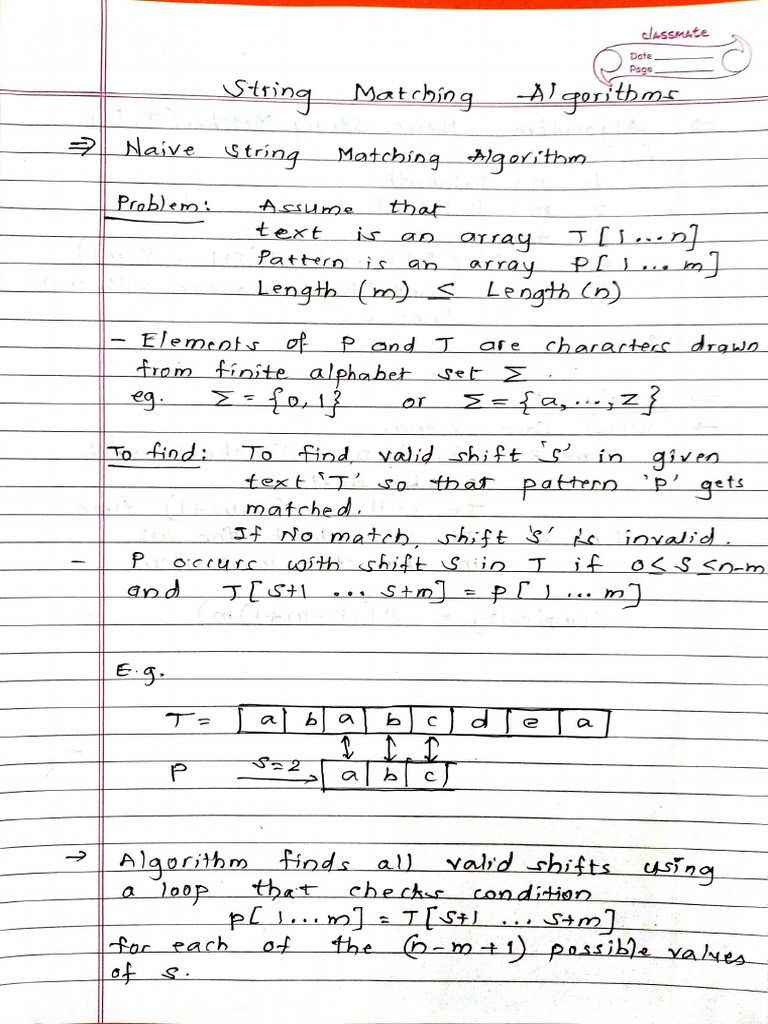 classmate
Date
Page
String Matching Algorithms
⇒ Naive String Matching Algorithm
Problem: Assume that
text is an array T[1...n]
Pattern is an array P[1...m]
Length (m) ≤ Length (n)
- Elements of P and T are characters drawn
from finite alphabet set Σ.
eg. Σ = {0,1} or Σ = {a,...,z}
To find: To find, valid shift 's' in given
text 'T' so that pattern 'P' gets
matched.
If No match, shift 's' is invalid.
- P occurs with shift s in T if 0≤s≤n-m
and T[s+1 ... s+m] = P[1...m]
E.g.
T = a b a b c d e a
P s=2 a b c
→ Algorithm finds all valid shifts using
a loop that checks condition
P[1...m] = T[s+1 ... s+m]
for each of the (n-m+1) possible values
of s.